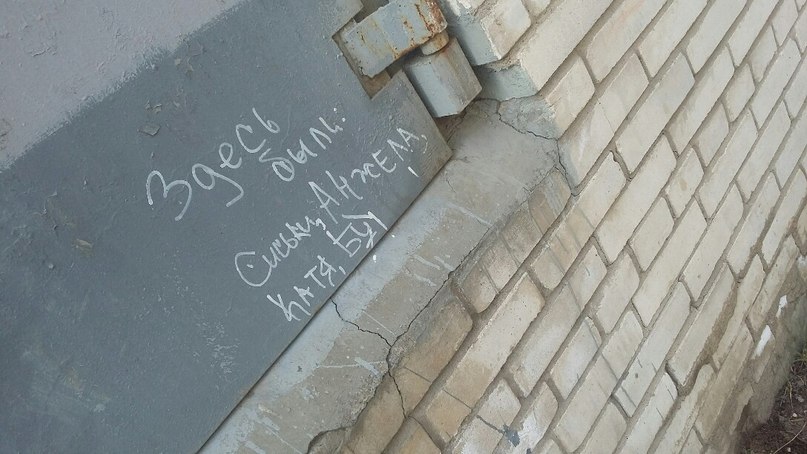 Здесь
были:
Сиськи, АНЖЕЛА,
КАТЯ, БУ!